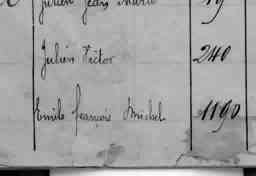 Julien Jean Marie 19
Julien Victor 240
Emile François Michel 1190